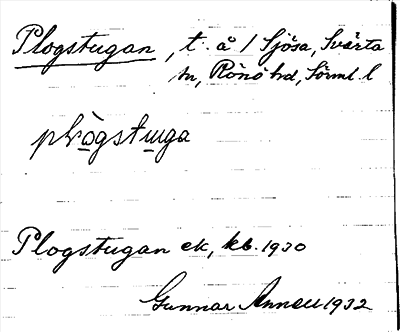 Plogstugan, t. å / Sjösa, Svärta
sn, Rönö hd, Sörml. l
plògstuga
Plogstugan ek, kb. 1930
Gunnar 1932